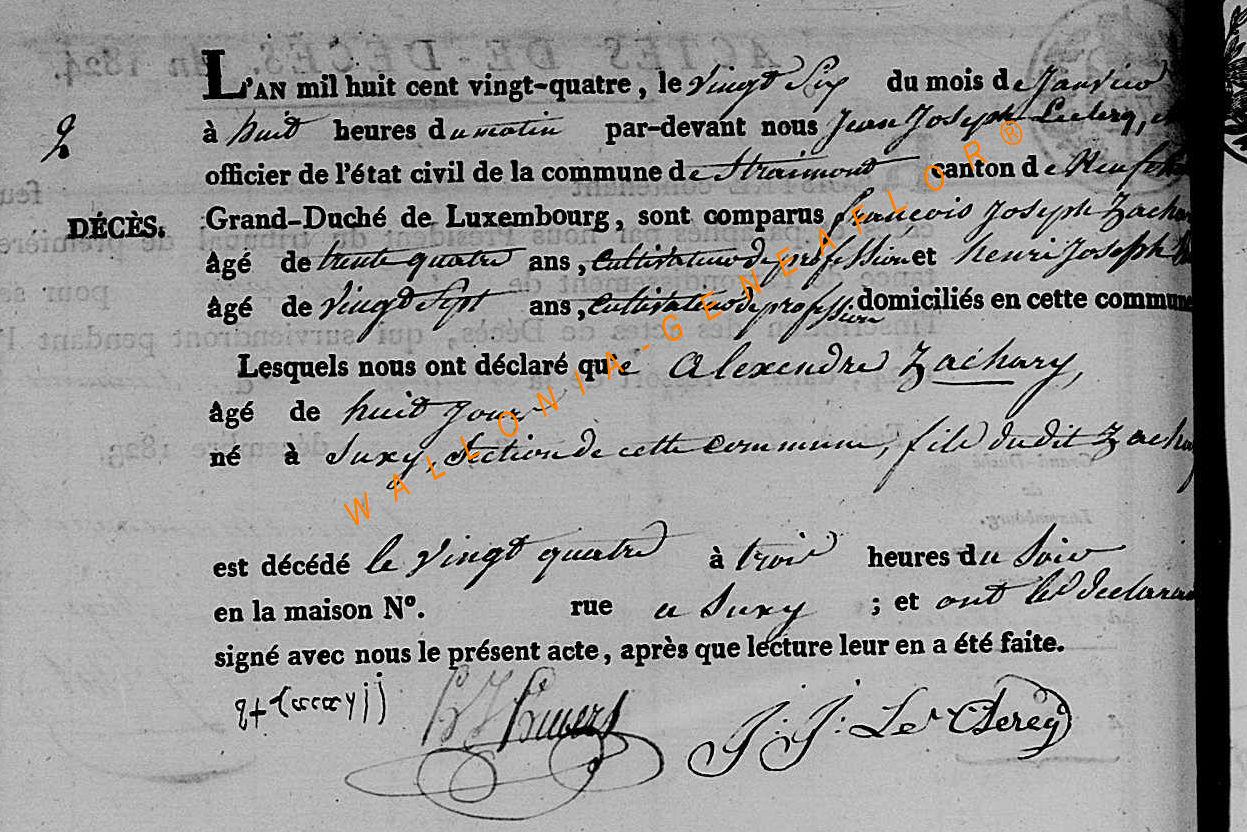 L'AN mil huit cent vingt-quatre, le vingt Six du mois de Janvier
2
à huit heures du matin par-devant nous Jean Joseph Leclerq,
officier de l'état civil de la commune de Straimont canton de Neufch
DÉCÈS.
Grand-Duché de Luxembourg, sont comparus françois Joseph Zachar
âgé de trente quatre ans, cultivateur de profession et henri Joseph
âgé de vingt Sept ans, cultivateur de profession domiciliés en cette commune
Lesquels nous ont déclaré que Alexendre Zachary,
âgé de huit Jours
né à Suxy, Section de cette commune, fils dudit Zachar
est décédé le vingt quatre à trois heures du Soir
en la maison N°. rue a Suxy ; et ont les declaran
signé avec nous le présent acte, après que lecture leur en a été faite.
J: J: Le Clercq
WALLONIA-GENEAFLOR®